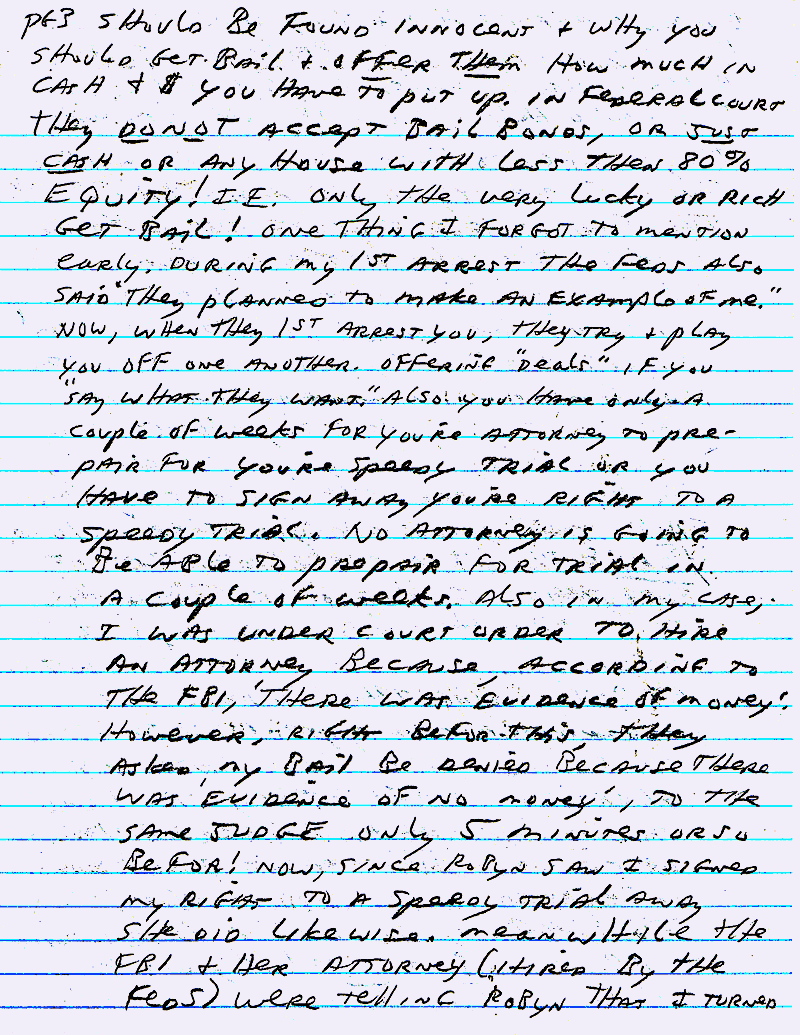 PG3 SHOULD BE FOUND INNOCENT & WHY YOU
SHOULD GET BAIL & OFFER THEM HOW MUCH IN
CASH & $ YOU HAVE TO PUT UP. IN FEDERAL COURT
THEY DO NOT ACCEPT BAIL BONDS, OR JUST
CASH OR ANY HOUSE WITH LESS THEN 80%
EQUITY! I.E. ONLY THE VERY LUCKY OR RICH
GET BAIL! ONE THING I FORGOT TO MENTION
EARLY. DURING MY 1ST ARREST THE FEDS ALSO
SAID "THEY PLANNED TO MAKE AN EXAMPLE OF ME."
NOW, WHEN THEY 1ST ARREST YOU, THEY TRY & PLAY
YOU OFF ONE ANOTHER. OFFERING "DEALS", IF YOU
"SAY WHAT THEY WANT." ALSO YOU HAVE ONLY A
COUPLE OF WEEKS FOR YOU'RE ATTORNEY TO PRE-
PAIR FOR YOU'RE SPEEDY TRIAL OR YOU
HAVE TO SIGN AWAY YOU'RE RIGHT TO A
SPEEDY TRIAL. NO ATTORNEY IS GOING TO
BE ABLE TO PREPAIR FOR TRIAL IN
A COUPLE OF WEEKS. ALSO IN MY CASE,
I WAS UNDER COURT ORDER TO HIRE
AN ATTORNEY BECAUSE, ACCORDING TO
THE FBI, 'THERE WAS EVIDENCE OF MONEY'.
HOWEVER, RIGHT BEFOR THIS, THEY
ASKED MY BAIL BE DENIED BECAUSE THERE
WAS 'EVIDENCE OF NO MONEY', TO THE
SAME JUDGE ONLY 5 MINUTES OR SO
BEFOR! NOW, SINCE ROBYN SAW I SIGNED
MY RIGHT TO A SPEEDY TRIAL AWAY
SHE DID LIKEWISE. MEANWHILE THE
FBI & HER ATTORNEY (HIRED BY THE
FEDS) WERE TELLING ROBYN THAT I TURNED